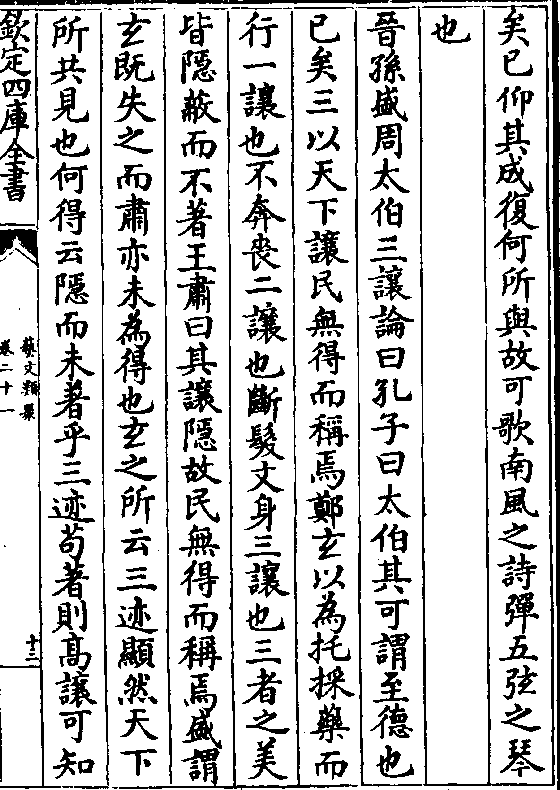 矣已仰其成復何所與故可歌南風之詩彈五弦之琴
也
晉孫盛周太伯三讓論曰孔子曰太伯其可謂至德也
已矣三以天下讓民無得而稱焉鄭玄以為托採藥而
行一讓也不奔喪二讓也斷髮文身三讓也三者之美
皆隱蔽而不著王肅曰其讓隱故民無得而稱焉盛謂
玄既失之而肅亦未為得也玄之所云三迹顯然天下
所共見也何得云隱而未著乎三迹苟著則高讓可知
欽定四庫全書
藝文類聚
卷二十一
十三